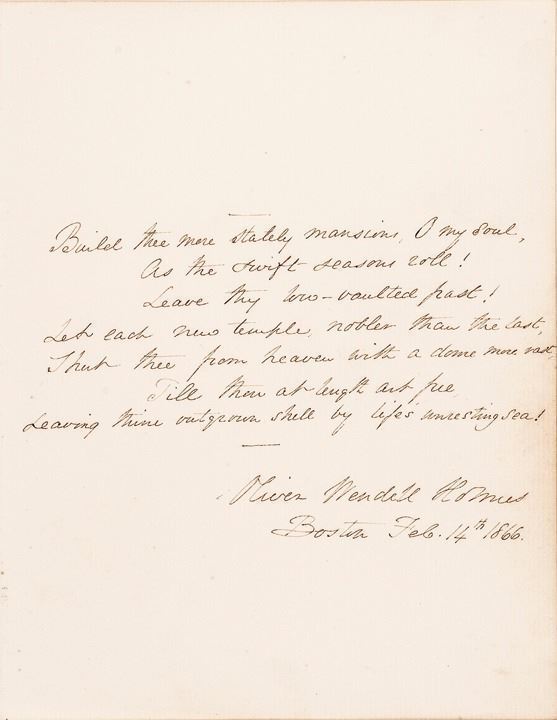 Build thee more stately mansions, O my soul,
As the swift seasons roll!
Leave thy low-vaulted past!
Let each new temple, nobler than the last,
Shut thee from heaven with a dome more vast,
Till thou at length art free,
Leaving thine outgrown shell by life's unresting sea!
Oliver Wendell Holmes
Boston Feb. 14th 1866.